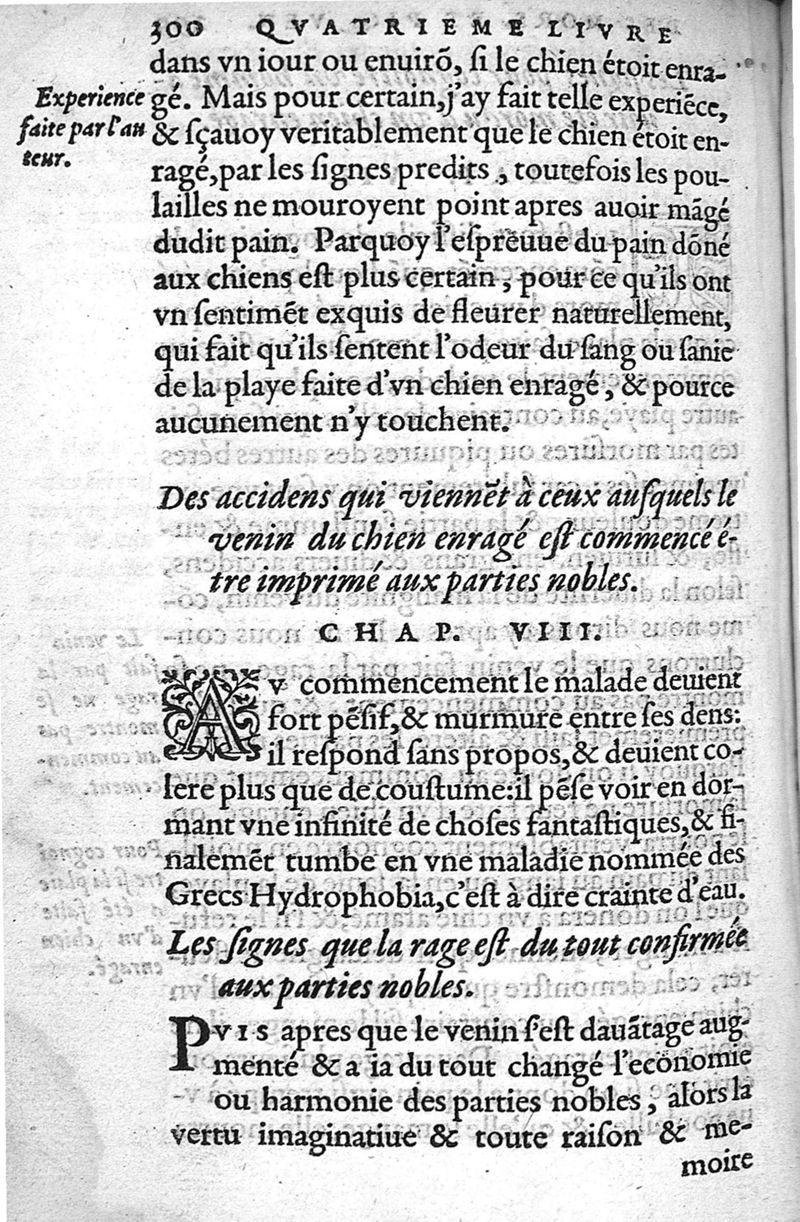 300 QVATRIEME LIVRE
dans vn iour ou enuirõ, ſi le chien étoit enra-
gé. Mais pour certain, j'ay fait telle experiẽce,
& ſçauoy veritablement que le chien étoit en-
ragé, par les ſignes predits, toutefois les pou-
lailles ne mouroyent point apres auoir mãgé
dudit pain. Parquoy l'eſpreuue du pain dõné
aux chiens eſt plus certain, pour ce qu'ils ont
vn ſentimẽt exquis de fleurer naturellement,
qui fait qu'ils ſentent l'odeur du ſang ou ſanie
de la playe faite d'vn chien enragé, & pource
aucunement n'y touchent.
Experience
faite par l'au
teur.
Des accidens qui viennẽt à ceux auſquels le
venin du chien enragé eſt commencé é-
tre imprimé aux parties nobles.
CHAP. VIII.
AV commencement le malade deuient
fort pẽſif, & murmure entre ſes dens:
il reſpond ſans propos, & deuient co-
lere plus que de couſtume: il pẽſe voir en dor-
mant vne infinité de choſes fantaſtiques, & fi-
nalemẽt tumbe en vne maladie nommée des
Grecs Hydrophobia, c'eſt à dire crainte d'eau.
Les ſignes que la rage eſt du tout confirmée
aux parties nobles.
PVIS apres que le venin s'eſt dauãtage aug-
menté & a ia du tout changé l'economie
ou harmonie des parties nobles, alors la
vertu imaginatiue & toute raiſon & me-
moire